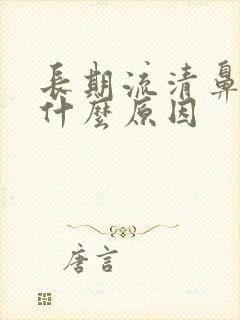 長期流清鼻
什麼原因
唐言